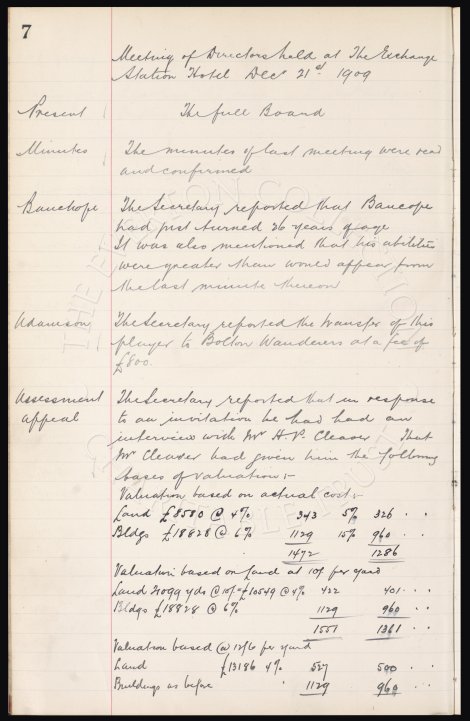 7
Meeting of Directors held at The Exchange
Station Hotel Decr 21st 1909
Present The full Board
Minutes The minutes of last meeting were read
and confirmed
Bauchope The Secretary reported that Baucope
had just turned 26 years of age
It was also mentioned that his abilities
were greater than would appear from
the last minute thereon
Adamson The Secretary reported the transfer of this
player to Bolton Wanderers at a fee of
£800.
Assessment The Secretary reported that in response
appeal to an invitation he had had an
interview with Mr H.P. Cleaver That
Mr Cleaver had given him the following
bases of valuation:-
Valuation based on actual cost:-
Land £8580 @ 4% 343 5% 326 " "
Bldgs £18828 @ 6% 1129 15% 960 " "
1472 1286
Valuation based on Land at 10/ per yard
Land 21099 yds @ 10/= £10549 @ 4% 422 401 " "
Bldgs £18828 @ 6% 1129 960 " "
1551 1361 " "
Valuation based @ 12/6 per yard
Land £13186 4% 527 500 " "
Buildings as before " 1129 960 " "
THE EVERTON COLLECTION